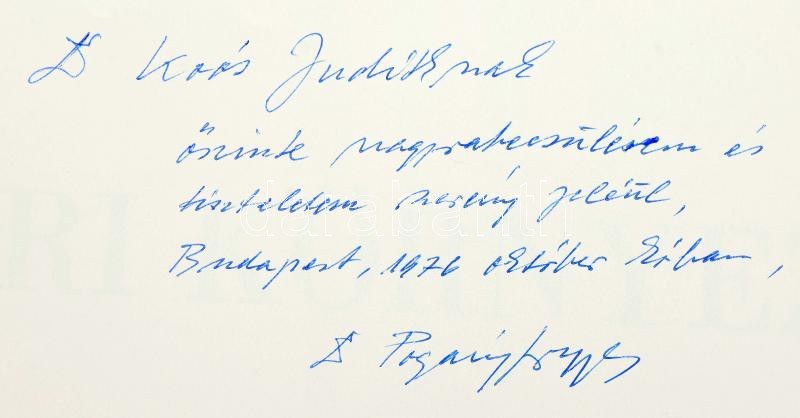 Dr Koós Juditnak
őszinte nagyrabecsülésem és
tiszteletem szerény jeléül,
Budapest, 1976 október hóban,
Dr Pogány Frigyes
darabanth